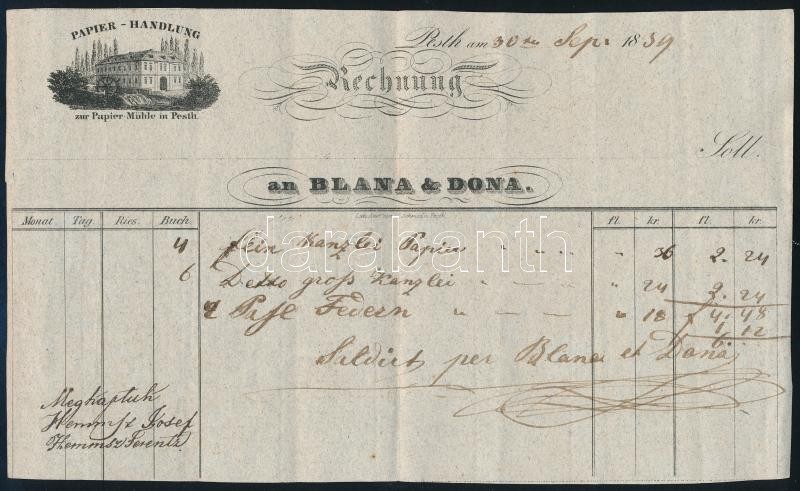 PAPIER - HANDLUNG
zur Papier-Mühle in Pesth.
Pesth am 30ten Sept 1839
Rechnung
Soll.
an BLANA & DONA.
Monat. Tag. Ries. Buch. fl. kr. fl. kr.
4 fein Kanzlei Papier " " " " 36 2. 24
6 Detto groß Kanzlei " — — " " 24 2. 24
4. 48
Federn " — — " " 18 1. 12
6.
Saldirt per Blana et Dona
Megkaptuk
Josef
darabanth.com